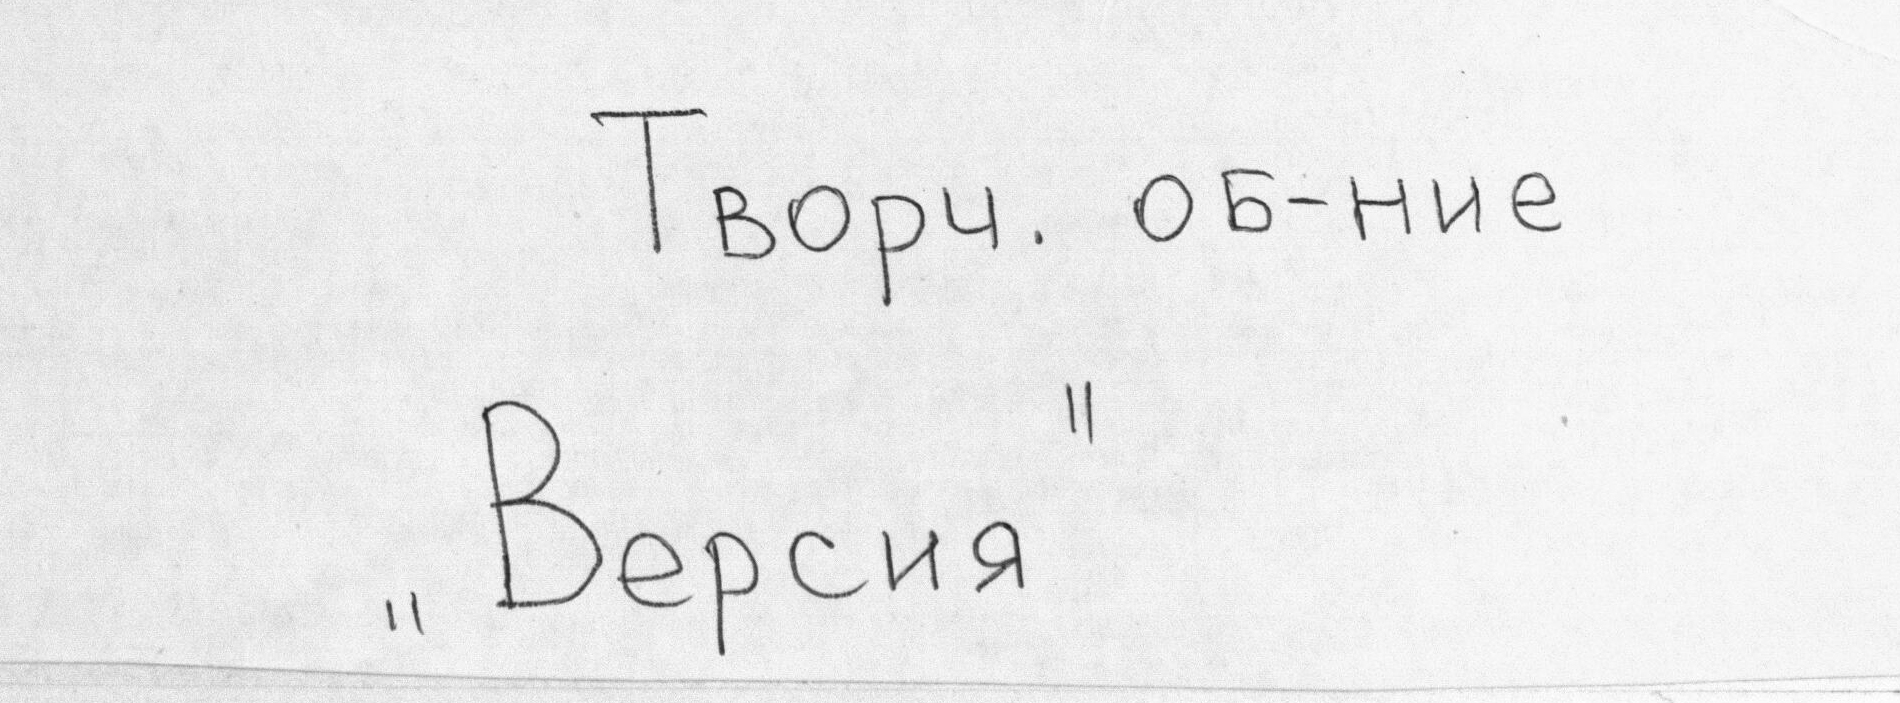 Творч. об-ние
„Версия"